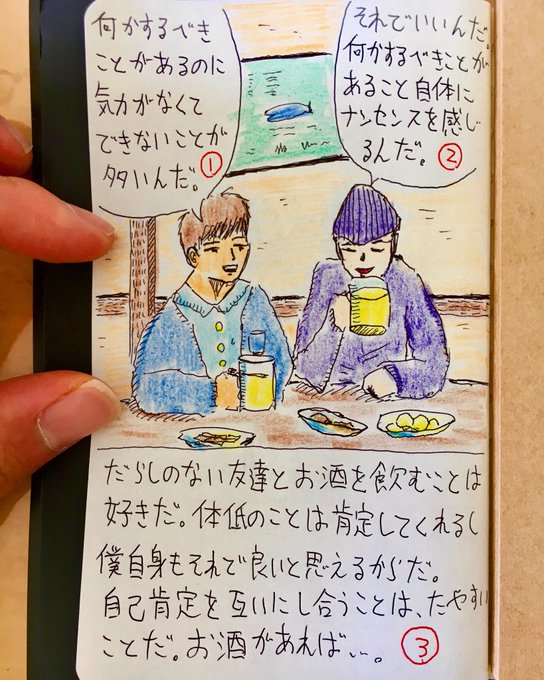 何かするべき
ことがあるのに
気力がなくて
できないことが
多いんだ。①
それでいいんだ。
何かするべきことが
あること自体に
ナンセンスを感じ
るんだ。②
だらしのない友達とお酒を飲むことは
好きだ。体低のことは肯定してくれるし
僕自身もそれで良いと思えるからだ。
自己肯定を互いにし合うことは、たやすい
ことだ。お酒があれば、、。③